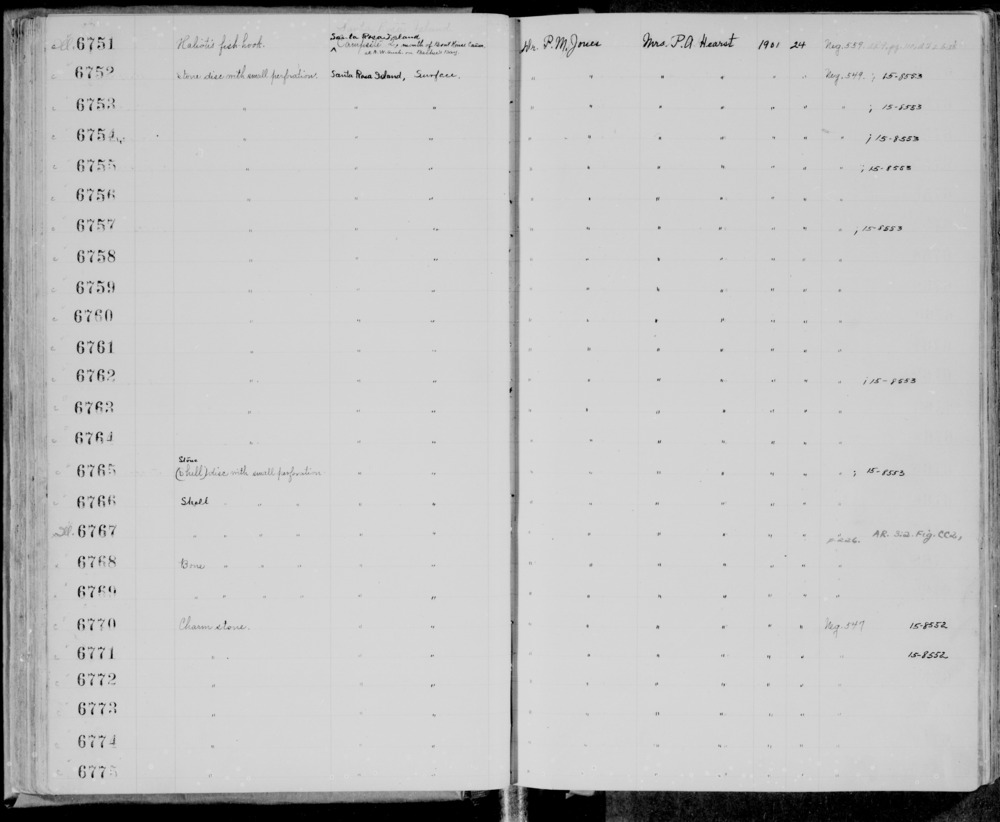 Ill. 6751 Haliotis fish hook. Santa Rosa Island, Campsite 2, mouth of Dr. P. M. Jones Mrs. P. A. Hearst 1901 24 Neg. 539.
6752 Stone disc with small perforation. Santa Rosa Island, Surface. " " " " " " Neg. 549. ; 15-8553
6753 " " " " " " " " " " ; 15-8553
6754 " " " " " " " " " " ; 15-8553
6755 " " " " " " " " " " ; 15-8553
6756 " " " " " " " " " "
6757 " " " " " " " " " " ; 15-8553
6758 " " " " " " " " " "
6759 " " " " " " " " " "
6760 " " " " " " " " " "
6761 " " " " " " " " " "
6762 " " " " " " " " " " ; 15-8553
6763 " " " " " " " " " "
6764 " " " " " " " " " "
Stone
6765 (Shell) disc with small perforation " " " " " " " " " ; 15-8553
6766 Shell " " " " " " " " " " " "
Ill. 6767 " " " " " " " " " " " " p. 226. AR. 3:2. Fig. CC2,
6768 Bone " " " " " " " " " " " "
6769 " " " " " " " " " " " " "
6770 Charm stone. " " " " " " " " Neg. 547 15-8552
6771 " " " " " " " " " " " 15-8552
6772 " " " " " " " " " "
6773 " " " " " " " " " "
6774 " " " " " " " " " "
6775 " " " " " " " " " "